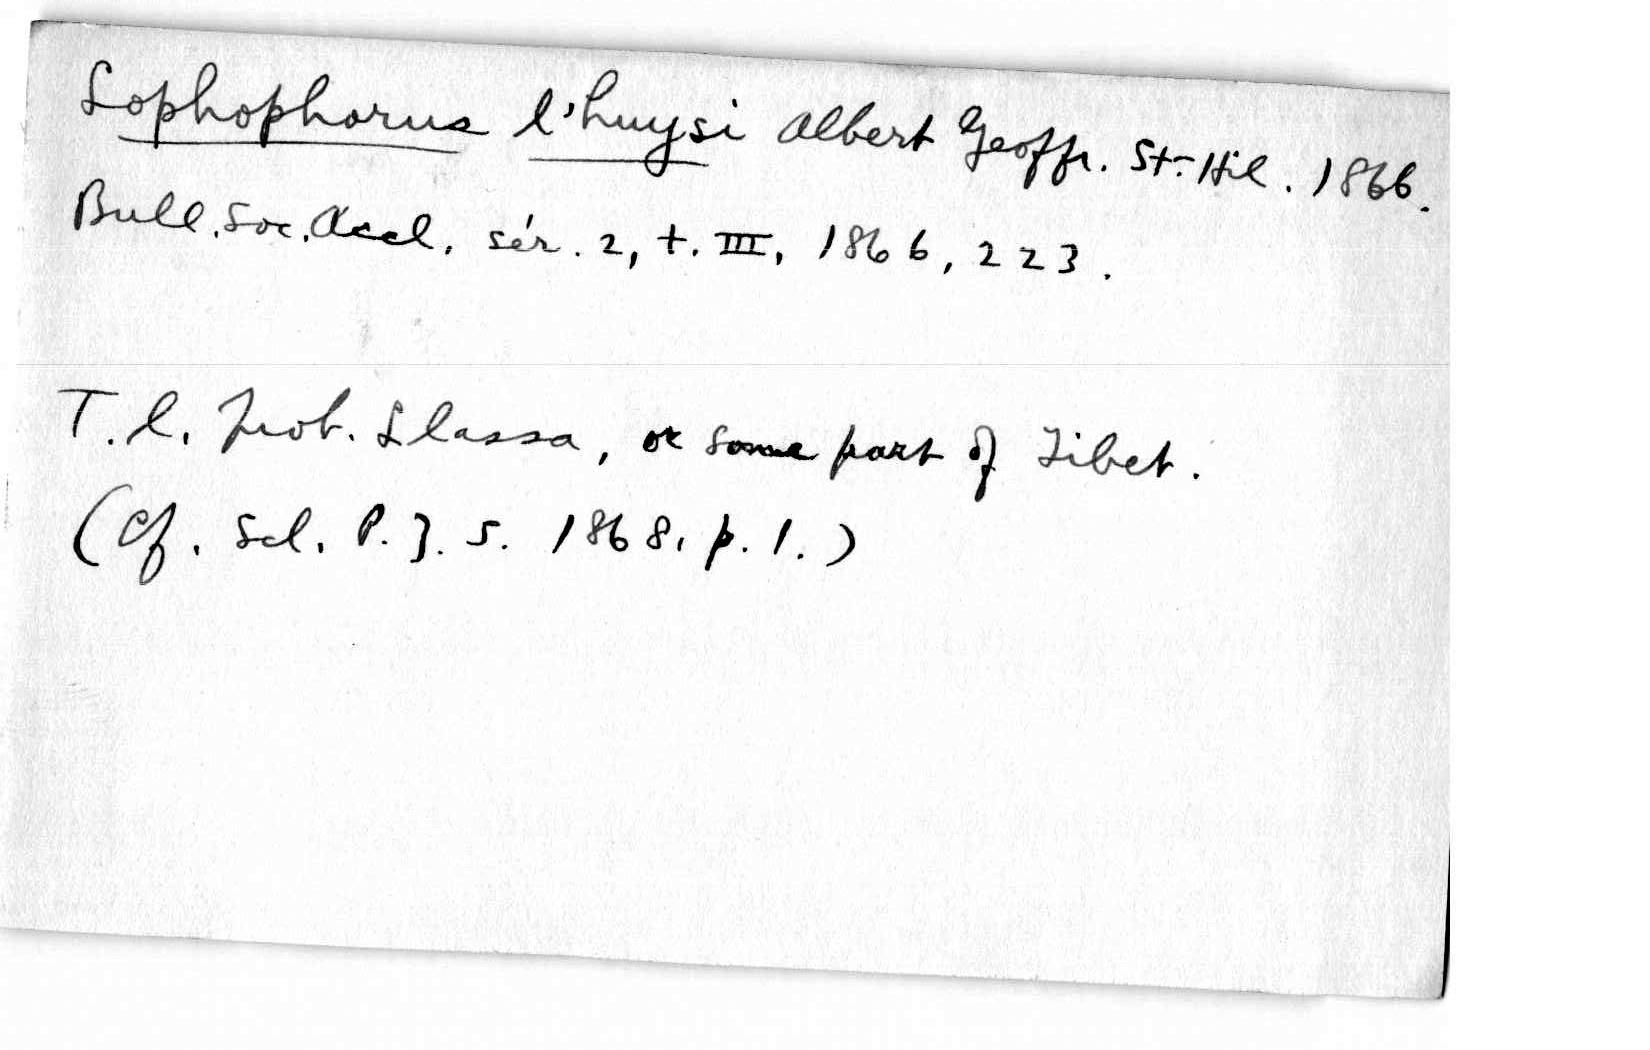 Lophophorus l'huysi Albert Geoffr. St-Hil. 1866.
Bull. Soc. Accl. sér. 2, t. III, 1866, 223.
T. l. prob. Llassa, or some part of Tibet.
(Cf. Scl. P. Z. S. 1868, p. 1.)